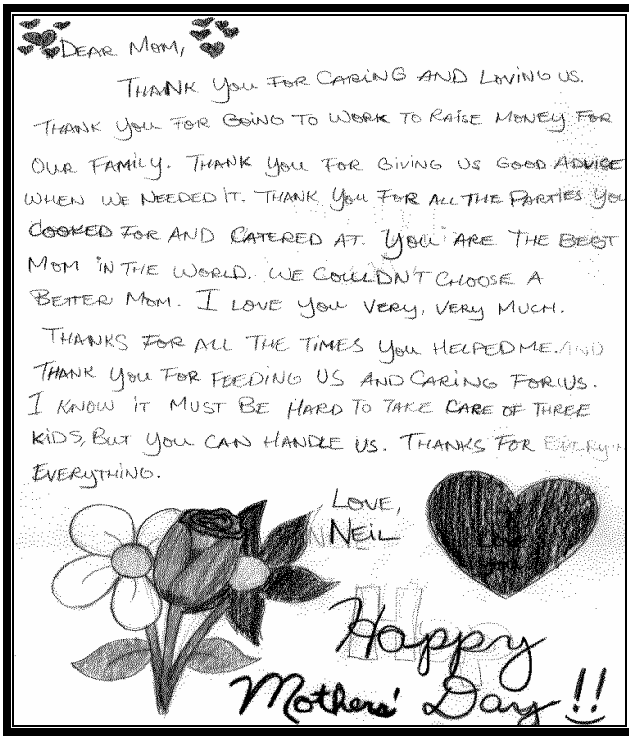 DEAR MOM,
THANK YOU FOR CARING AND LOVING US.
THANK YOU FOR GOING TO WORK TO RAISE MONEY FOR
OUR FAMILY. THANK YOU FOR GIVING US GOOD ADVICE
WHEN WE NEEDED IT. THANK YOU FOR ALL THE PARTIES YOU
COOKED FOR AND CATERED AT. YOU ARE THE BEST
MOM IN THE WORLD. WE COULDN'T CHOOSE A
BETTER MOM. I LOVE YOU VERY, VERY MUCH.
THANKS FOR ALL THE TIMES YOU HELPED ME. AND
THANK YOU FOR FEEDING US AND CARING FOR US.
I KNOW IT MUST BE HARD TO TAKE CARE OF THREE
KIDS, BUT YOU CAN HANDLE US. THANKS FOR
EVERYTHING.
LOVE,
NEIL
I
LOVE
YOU
Happy
Mothers' Day!!